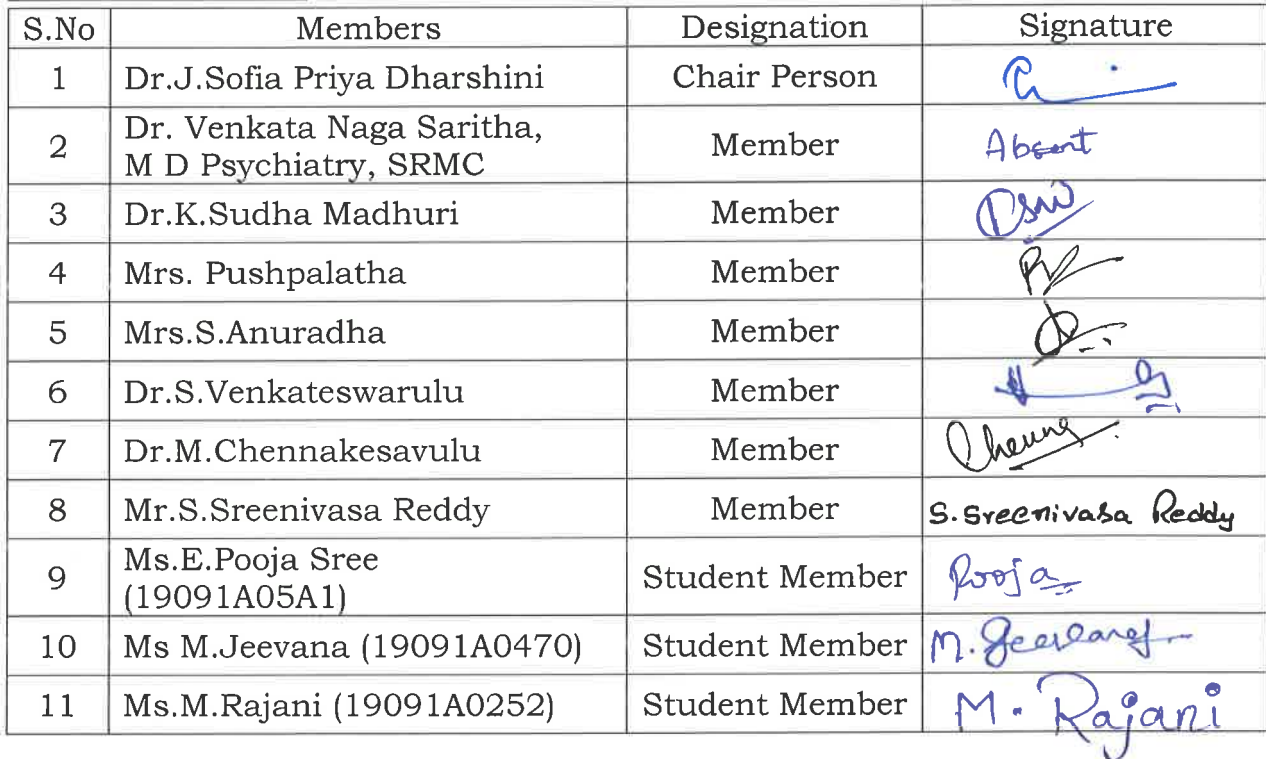 S.No Members Designation Signature
1 Dr.J.Sofia Priya Dharshini Chair Person
2 Dr. Venkata Naga Saritha,
M D Psychiatry, SRMC Member Absent
3 Dr.K.Sudha Madhuri Member
4 Mrs. Pushpalatha Member
5 Mrs.S.Anuradha Member
6 Dr.S.Venkateswarulu Member
7 Dr.M.Chennakesavulu Member
8 Mr.S.Sreenivasa Reddy Member S.Sreenivasa Reddy
9 Ms.E.Pooja Sree
(19091A05A1) Student Member Pooja
10 Ms M.Jeevana (19091A0470) Student Member M.Jeevana
11 Ms.M.Rajani (19091A0252) Student Member M. Rajani